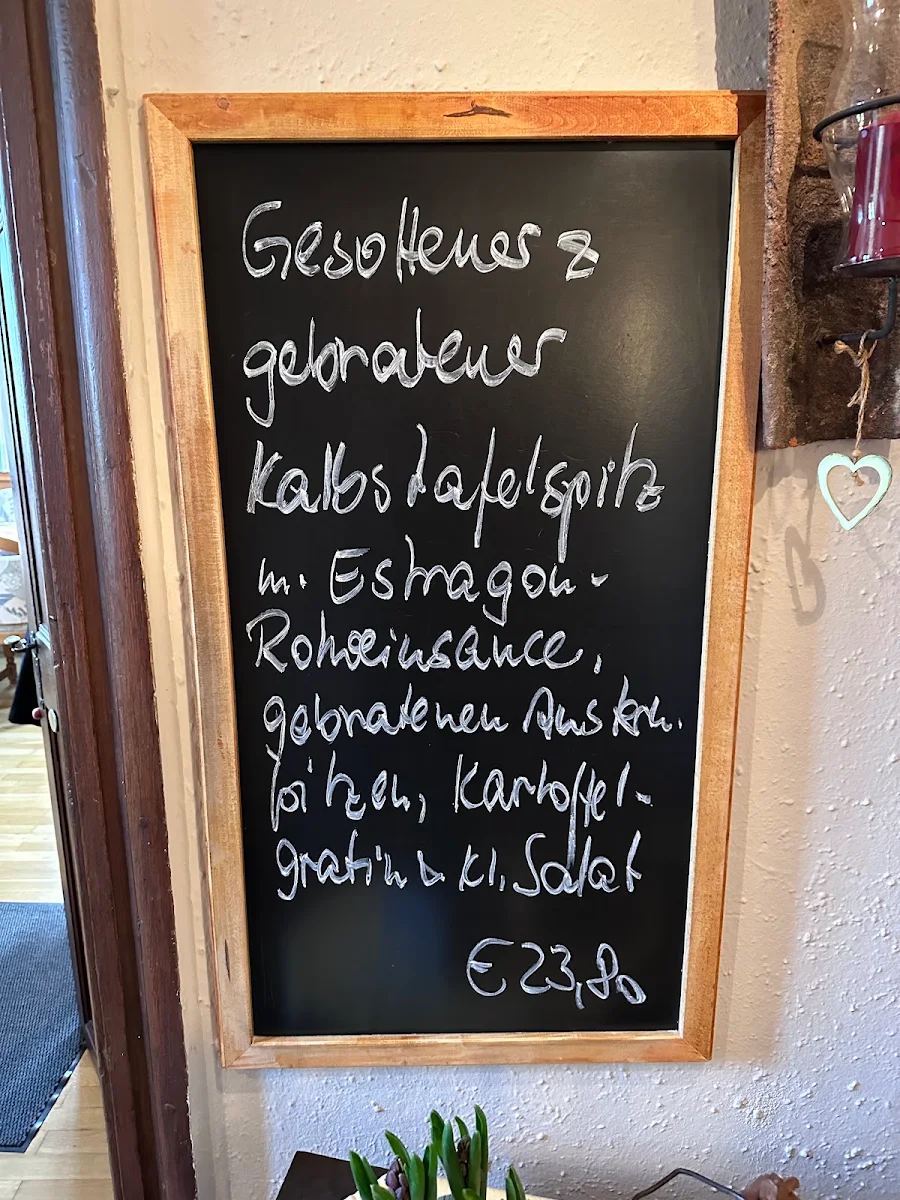 Gesottener &
gebratener
Kalbstafelspitz
m. Estragon-
Rotweinsauce,
gebratenen Austern-
pilzen, Kartoffel-
gratin & kl. Salat
€ 23,80